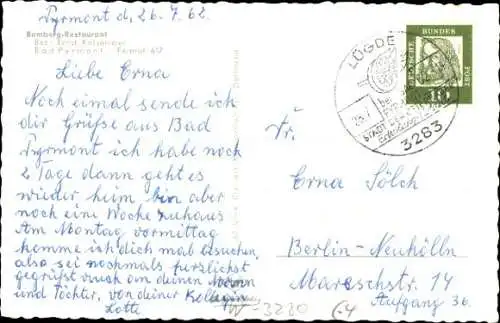 Pyrmont d, 26.7.62.
Bomberg-Restaurant
Bad Pyrmont
Liebe Erna
Noch einmal sende ich
dir Grüße aus Bad
Pyrmont ich habe noch
2 Tage dann geht es
wieder heim bin aber
noch eine Woche zuhaus
Am Montag vormittag
komme ich dich mal besuchen,
also sei nochmals herzlichst
gegrüßt auch an deinen Mann
und Töchter, von deiner
Lotte
LÜGDE
3283
DEUTSCHE BUNDESPOST
10
Fr.
Erna Sölch
Berlin-Neukölln
Mareschstr. 14
Aufgang 3c.
W-3280